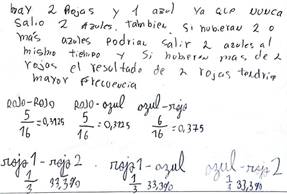 hay 2 Rojas y 1 azul Ya que nunca
salio 2 Azules. Tambien Si hubieran 2 o
más azules podrian salir 2 azules al
mismo tiempo y Si hubieran mas de 2
rojas el resultado de 2 rojas tendria
mayor frecuencia
Rojo-Rojo Rojo-azul azul-rojo
5/16 =0,3125 5/16 =0,3125 6/16 =0,375
roja1-roja2 roja1-azul azul-roja2
1/3 33,3% 1/3 33,3% 1/3 33,3%